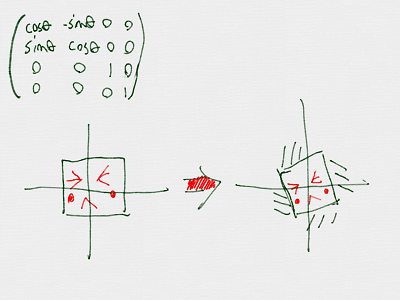 cosθ -sinθ 0 0
sinθ cosθ 0 0
0 0 1 0
0 0 0 1